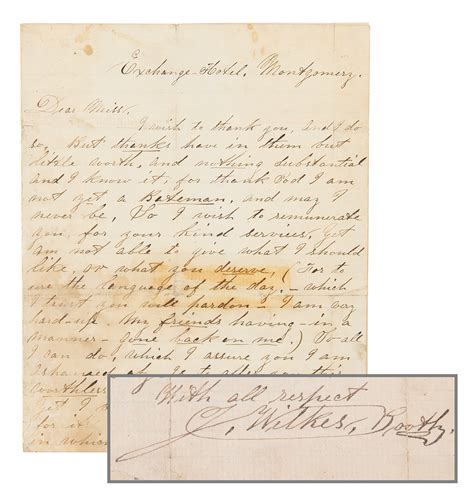 Exchange Hotel, Montgomery.
Dear Miss.
I wish to thank you, and I do
so, But thanks have in them but
little worth, and nothing substantial
and I know it, for thank God I am
not yet a Bateman, and may I
never be, So I wish to remunerate
you for your kind services, yet
am not able to give what I should
like, or what you deserve, (For to
use the language of the day,- which
I trust you will pardon- I am very
hard-up My friends having- in a
manner- gone back on me.) So all
I can do, which I assure you I am
ashamed of, Is to offer you this
worthless
yet I
in which
With all respect
J. Wilkes, Booth,